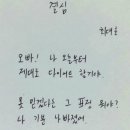 결심
최대호
오빠! 나 오늘부터
제대로 다이어트 할거야
못 믿겠다는 그 표정 뭐야?
나 기분 나빠졌어.